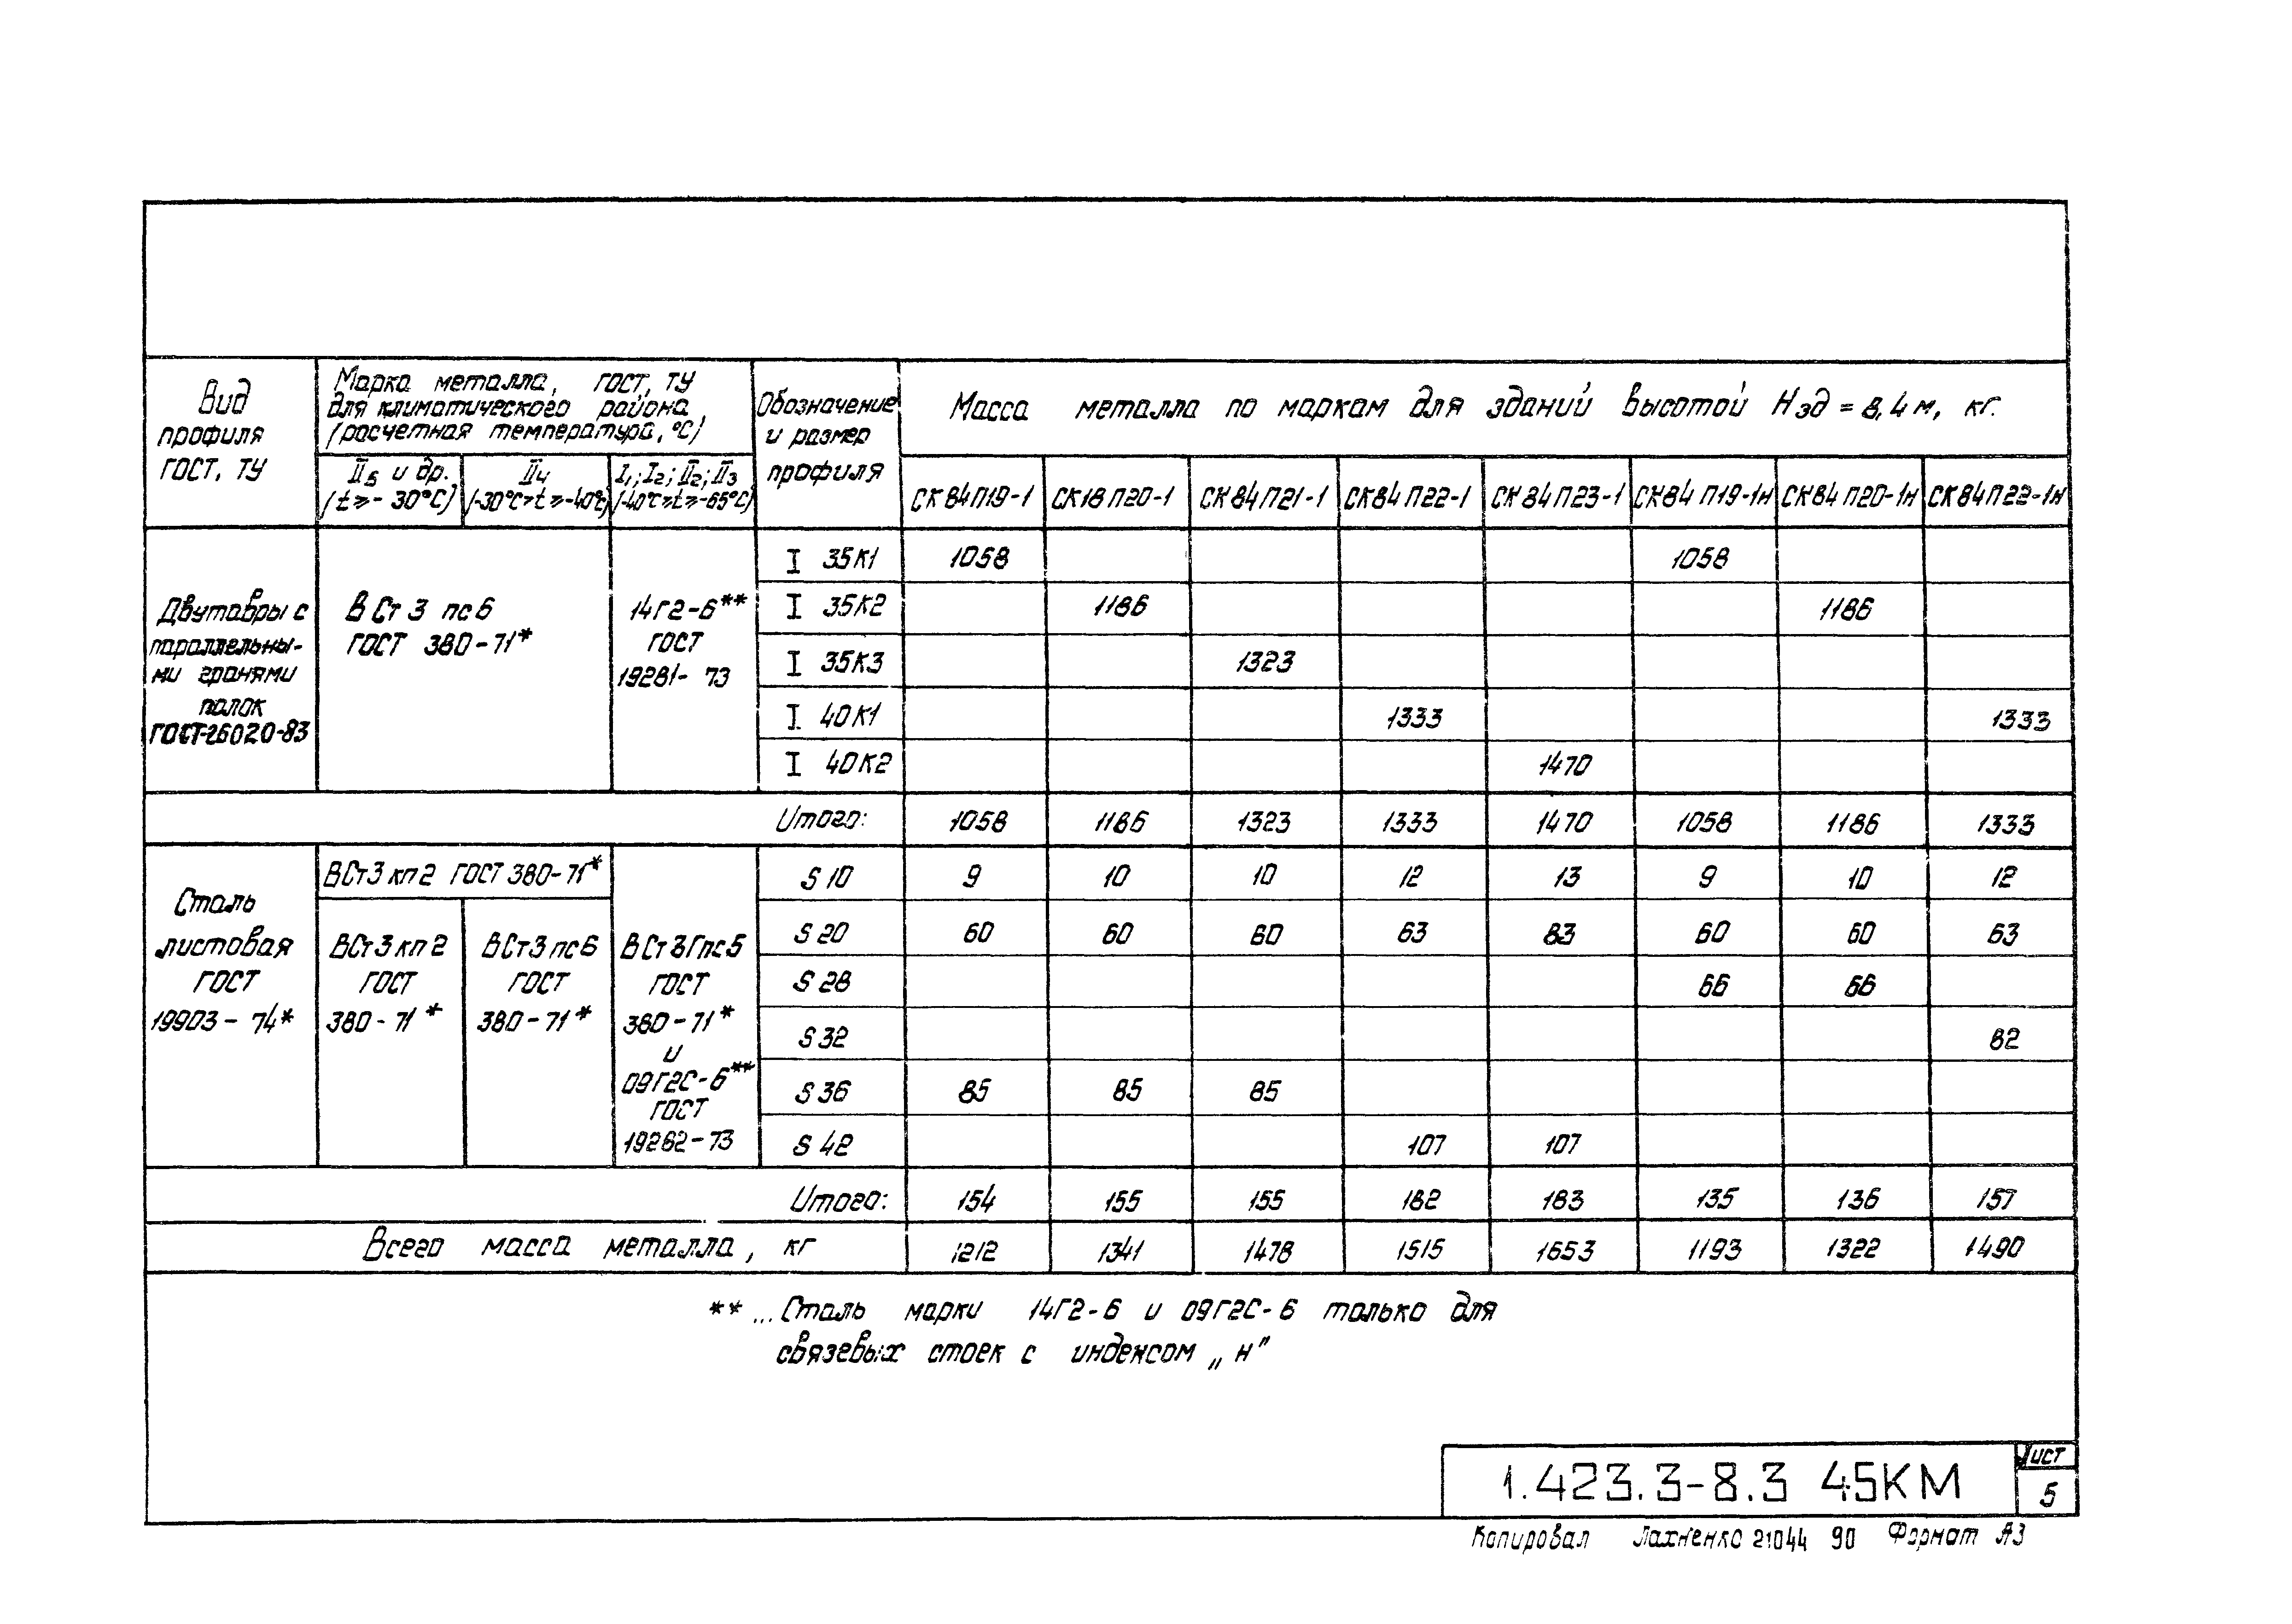 Вид профиля ГОСТ, ТУ
Марка металла, ГОСТ, ТУ
для климатического района,
(расчетная температура, °С)
Обозначение и размер профиля
Масса металла по маркам для зданий высотой Нзд = 8,4 м, кг.
II5 и др. (t ≥ - 30°С)
II4 (-30°С>t ≥ -40°С)
I1; I2; II2; II3 (-40°С≥t ≥ -65°С)
СК84П19-1 СК18П20-1 СК84П21-1 СК84П22-1 СК84П23-1 СК84П19-1н СК84П20-1н СК84П22-1н
Двутавры с
параллельны-
ми гранями
полок
ГОСТ-26020-83
ВСт3 пс6
ГОСТ 380-71*
14Г2-6**
ГОСТ
19281-73
I 35К1 1058 1058
I 35К2 1186 1186
I 35К3 1323
I 40К1 1333 1333
I 40К2 1470
Итого: 1058 1186 1323 1333 1470 1058 1186 1333
Сталь
листовая
ГОСТ
19903-74*
ВСт3кп2 ГОСТ 380-71*
ВСт3кп2
ГОСТ
380-71*
ВСт3пс6
ГОСТ
380-71*
ВСт3Гпс5
ГОСТ
380-71*
и
09Г2С-6**
ГОСТ
19282-73
S 10 9 10 10 12 13 9 10 12
S 20 60 60 60 63 63 60 60 63
S 28 66 66
S 32 82
S 36 85 85 85
S 42 107 107
Итого: 154 155 155 182 183 135 136 157
Всего масса металла, кг 1212 1341 1478 1515 1653 1193 1322 1490
** ... Сталь марки 14Г2-6 и 09Г2С-6 только для
связевых стоек с индексом „н"
1.423.3-8.3 45КМ
Лист
5
Копировал Лахненко 21044 90 Формат А3